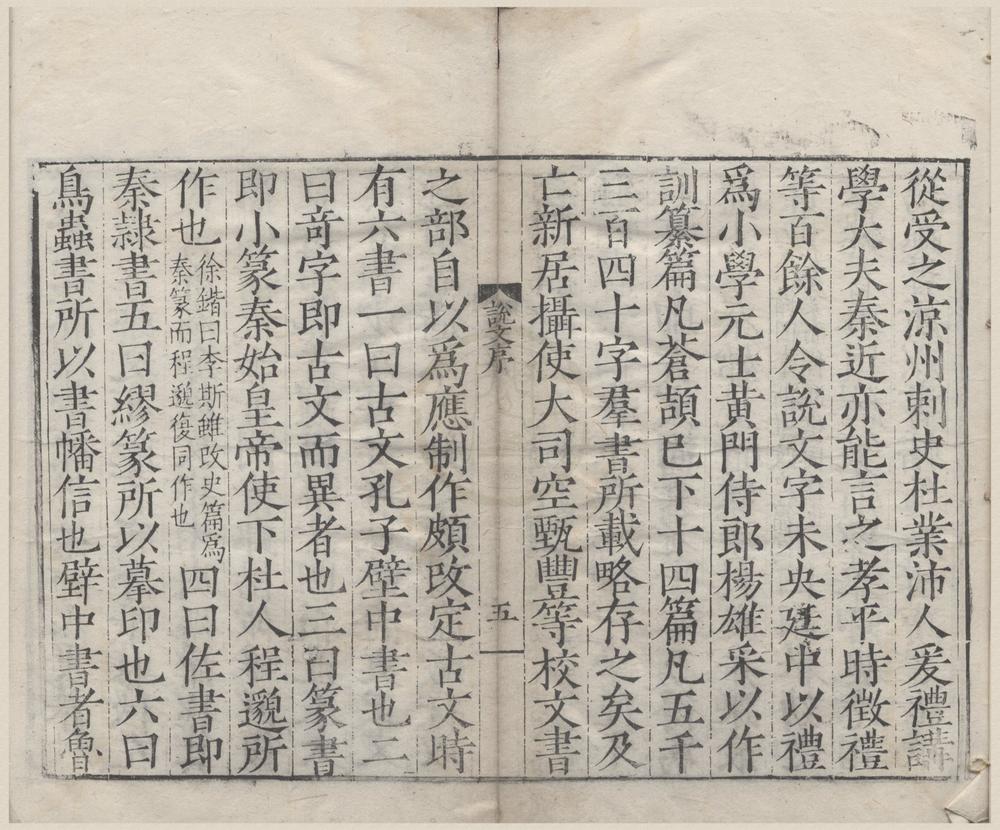 從受之涼州刺史杜業沛人爰禮講
學大夫秦近亦能言之孝平時徵禮
等百餘人令說文字未央廷中以禮
爲小學元士黃門侍郎楊雄采以作
訓纂篇凡蒼頡巳下十四篇凡五千
三百四十字羣書所載略存之矣及
亡新居攝使大司空甄豐等校文書
說文序
五
之部自以爲應制作頗改定古文時
有六書一曰古文孔子壁中書也二
曰奇字即古文而異者也三曰篆書
即小篆秦始皇帝使下杜人程邈所
作也徐鍇曰李斯雖改史篇爲秦篆而程邈復同作也四曰佐書即
秦隷書五曰繆篆所以摹印也六曰
鳥蟲書所以書幡信也壁中書者魯